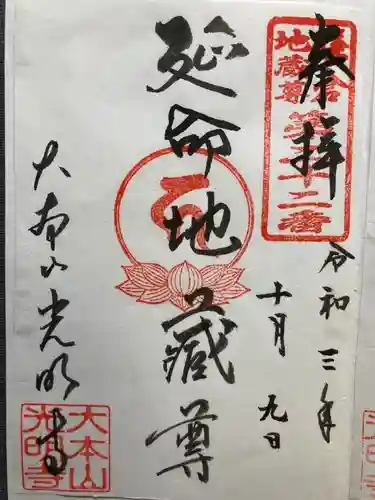 奉拝
鎌倉
地蔵尊
第二十二番
令和三年
十月九日
延命地蔵尊
大本山光明寺
大本山
光明寺